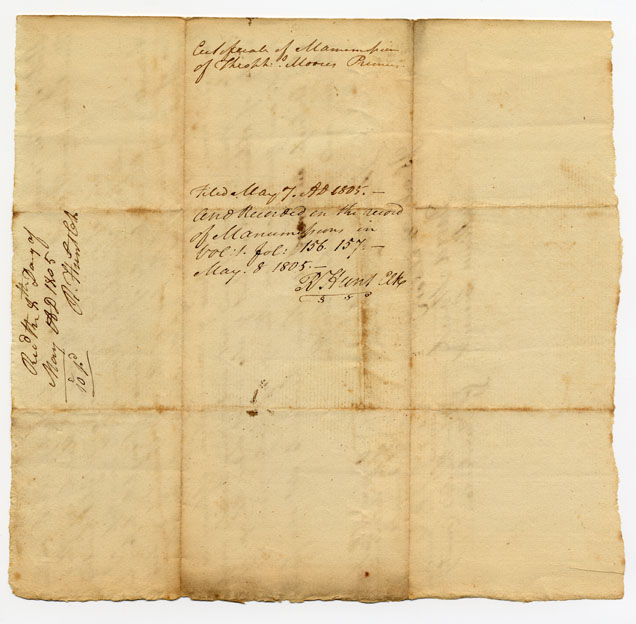 Certificate of Manumission
of Theoph: Moores Primus.
Filed May 7. AD 1805.—
and Recorded in the record
of Manumissions in
Vol: 1. fol: 156. 157.—
May. 8 1805.—
R Hunt Clk
Recd the 8th Day of
May AD 1805
R. Hunt Clk